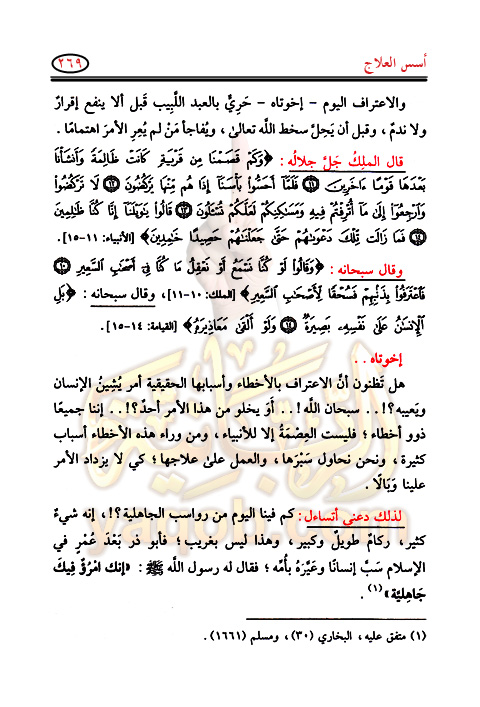 أسس العلاج
٢٦٩
والاعتراف اليوم - إخوتاه - حَرِيٌّ بالعبد اللَّبيب قَبل ألا ينفع إقرارٌ
ولا ندمٌ ، وقبل أن يَحِلَّ سخط اللَّه تعالىٰ ، ويُفاجأ مَنْ لم يُعِرِ الأمرَ اهتمامًا .
قال الملِكُ جَلَّ جلالُه : ﴿وَكَمْ قَصَمْنَا مِن قَرْيَةٍ كَانَتْ ظَالِمَةً وَأَنشَأْنَا
بَعْدَهَا قَوْمًا ءَاخَرِينَ ۝١١ فَلَمَّا أَحَسُّوا بَأْسَنَآ إِذَا هُم مِّنْهَا يَرْكُضُونَ ۝١٢ لَا تَرْكُضُوا
وَارْجِعُوٓا إِلَىٰ مَآ أُتْرِفْتُمْ فِيهِ وَمَسَـٰكِنِكُمْ لَعَلَّكُمْ تُسْـَٔلُونَ ۝١٣ قَالُوا يَـٰوَيْلَنَآ إِنَّا كُنَّا ظَـٰلِمِينَ
۝١٤ فَمَا زَالَت تِّلْكَ دَعْوَىٰهُمْ حَتَّىٰ جَعَلْنَـٰهُمْ حَصِيدًا خَـٰمِدِينَ﴾ [الأنبياء: ١١-١٥].
وقال سبحانه : ﴿وَقَالُوا لَوْ كُنَّا نَسْمَعُ أَوْ نَعْقِلُ مَا كُنَّا فِىٓ أَصْحَـٰبِ السَّعِيرِ ۝١٠
فَاعْتَرَفُوا بِذَنۢبِهِمْ فَسُحْقًا لِّأَصْحَـٰبِ السَّعِيرِ﴾ [الملك: ١٠-١١]، وقال سبحانه : ﴿بَلِ
الْإِنسَـٰنُ عَلَىٰ نَفْسِهِۦ بَصِيرَةٌ ۝١٤ وَلَوْ أَلْقَىٰ مَعَاذِيرَهُۥ﴾ [القيامة: ١٤-١٥] .
إخوتاه . .
هل تَظنون أنَّ الاعتراف بالأخطاء وأسبابها الحقيقية أمر يُشِينُ الإنسان
ويَعيبه؟! . . سبحان اللَّه ! . . أَوَ يخلو من هذا الأمر أحدٌ؟! . . إننا جميعًا
ذوو أخطاء ؛ فليست العِصْمَةُ إلا للأنبياء ، ومن وراء هذه الأخطاء أسباب
كثيرة ، ونحن نحاول سَبْرَها ، والعمل علىٰ علاجها ؛ كي لا يزداد الأمر
علينا وَبَالًا .
لذلك دعني أتساءل : كم فينا اليوم من رواسب الجاهلية؟!، إنه شيءٌ
كثير، ركامٌ طويلٌ وكبير ، وهذا ليس بغريب ؛ فأبو ذر بَعْدَ عُمْرٍ في
الإسلام سَبَّ إنسانًا وعَيَّرَهُ بأُمِّه ؛ فقال له رسول اللَّه ﷺ : «إنك امْرُؤٌ فِيكَ
جَاهِلِيَّة»(١) .
(١) متفق عليه ، البخاري (٣٠)، ومسلم (١٦٦١) .